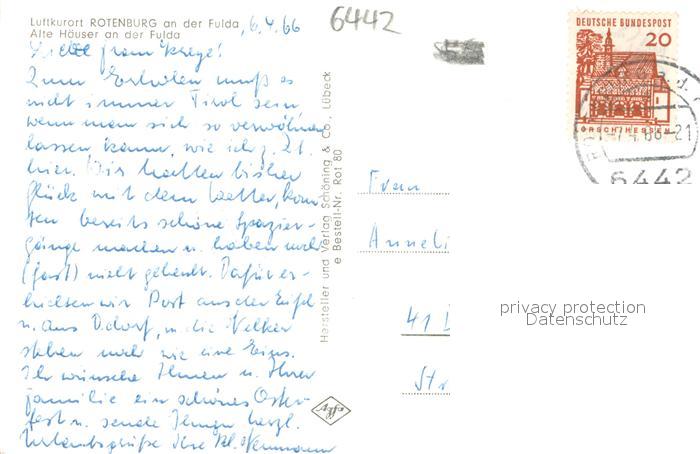 Luftkurort ROTENBURG an der Fulda
Alte Häuser an der Fulda
, 6.4.66
6442
Liebe Frau
Zum Erholen muß es
nicht immer Tirol sein
wenn man sich so verwöhnen
lassen kann, wie ich z. Zt.
hier. Wir hatten bisher
Glück mit dem Wetter, konn-
ten bereits schöne Spazier-
gänge machen u. haben
(fast) nicht geheizt. Dafür er-
hielten wir Post aus der Eifel
u. aus Ddorf, die Nelken
stehen noch wie eine Eins.
Ich wünsche Ihnen u. Ihrer
Familie ein schönes Oster-
fest u. sende Ihnen herzl.
Urlaubsgrüße Ihre Neumann
Hersteller und Verlag Schöning & Co., Lübeck
e Bestell-Nr. Rot 80
Agfa
DEUTSCHE BUNDESPOST
20
LORSCH/HESSEN
6442
Frau
Anneli
41
Str
privacy protection
Datenschutz